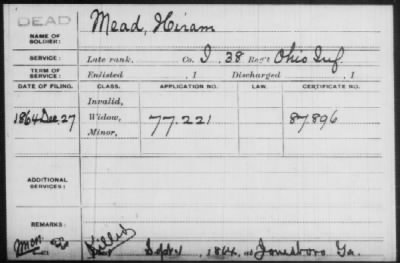 DEAD
NAME OF SOLDIER: Mead, Hiram
SERVICE: Late rank, Co. I, 38 Reg't Ohio Inf.
TERM OF SERVICE: Enlisted , 1 Discharged , 1
DATE OF FILING. CLASS. APPLICATION NO. LAW. CERTIFICATE NO.
Invalid,
1864 Dec. 27 Widow, 77.221 87.896
Minor,
ADDITIONAL SERVICES:
REMARKS:
Killed
Sept 1, 1864, at Jonesboro Ga.